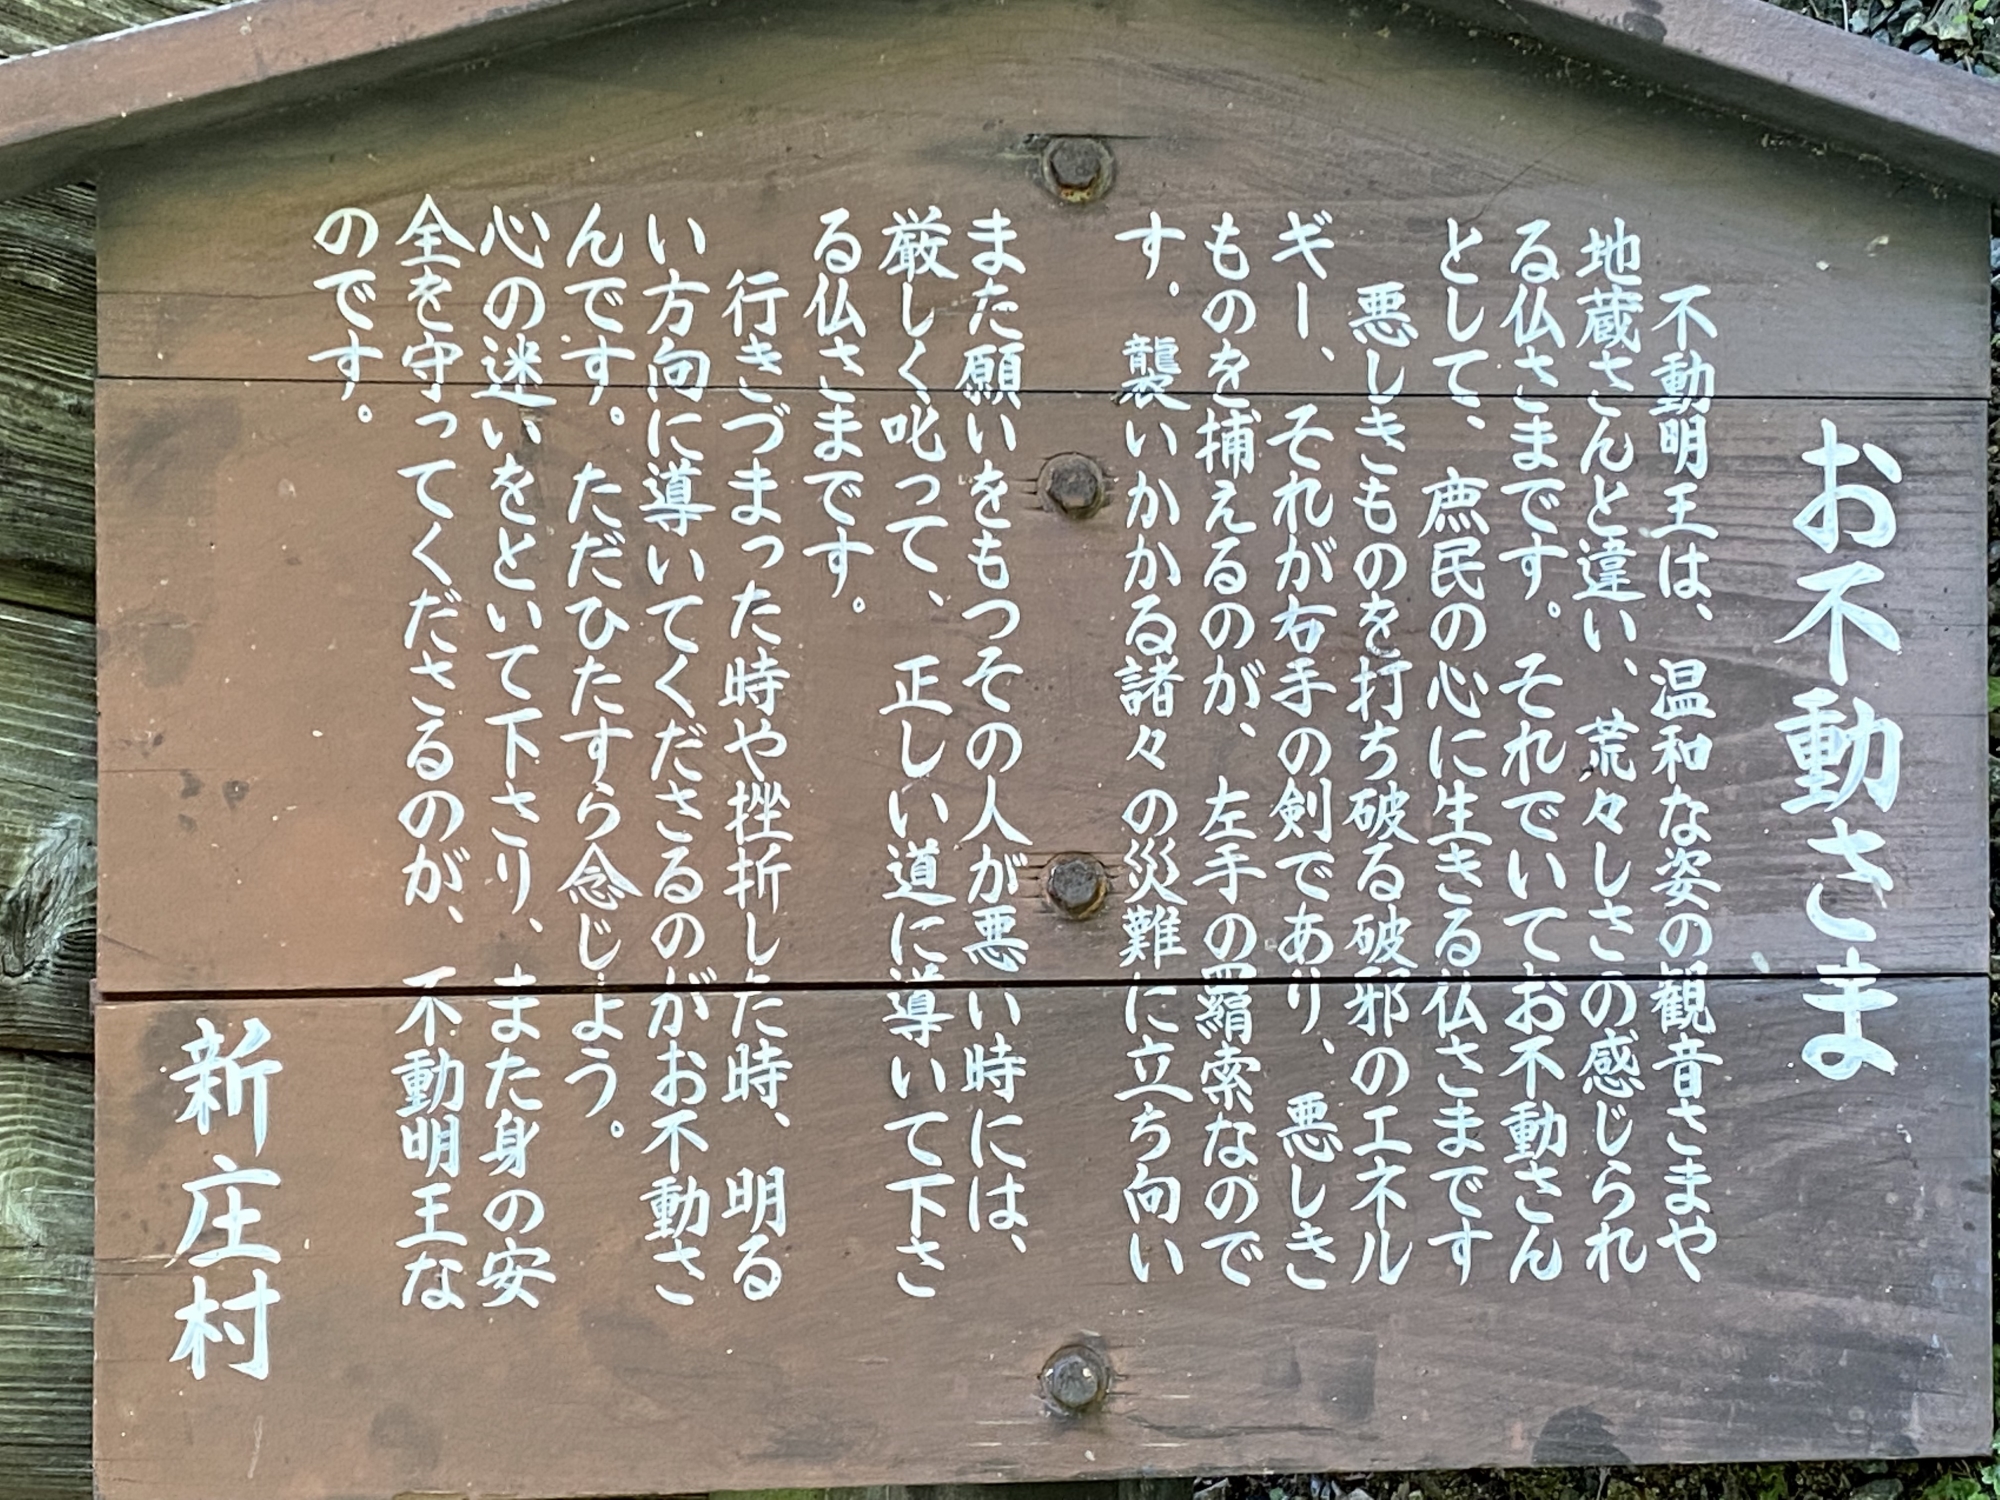 お不動さま
不動明王は、温和な姿の観音さまや
地蔵さんと違い、荒々しさの感じられ
る仏さまです。それでいてお不動さん
として、庶民の心に生きる仏さまです
悪しきものを打ち破る破邪のエネル
ギー、それが右手の剣であり、悪しき
ものを捕えるのが、左手の羂索なので
す。襲いかかる諸々の災難に立ち向い
また願いをもつその人が悪い時には、
厳しく叱って、正しい道に導いて下さ
る仏さまです。
行きづまった時や挫折した時、明る
い方向に導いてくださるのがお不動さ
んです。ただひたすら念じよう。
心の迷いをといて下さり、また身の安
全を守ってくださるのが、不動明王な
のです。
新庄村